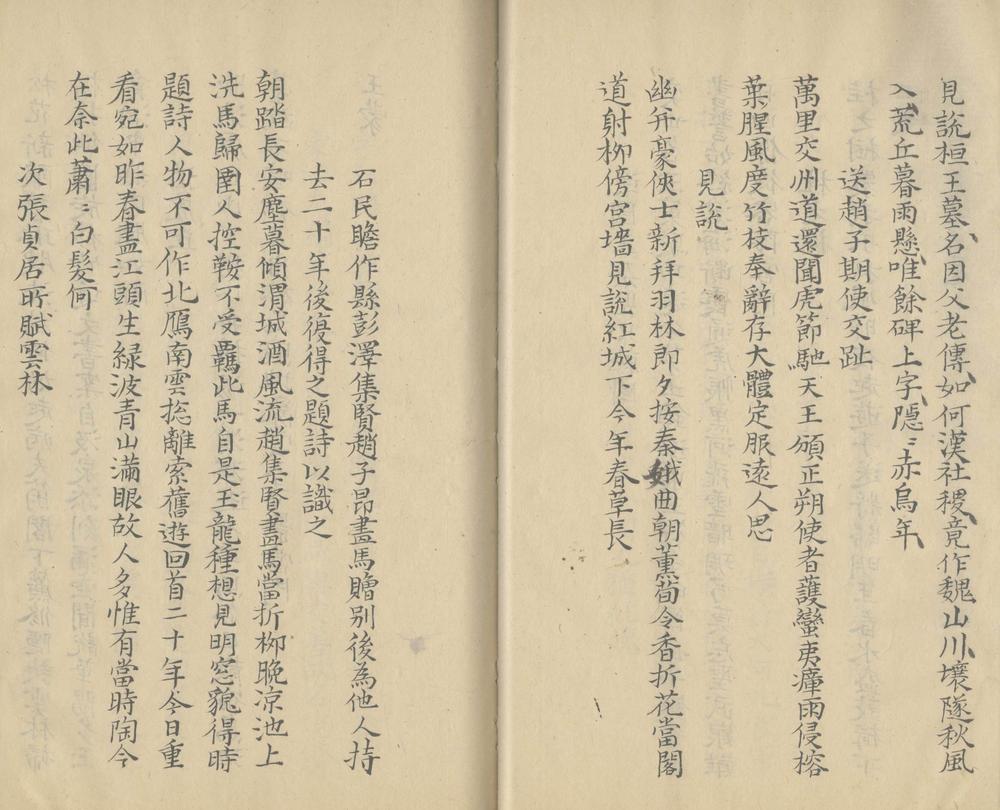 見說桓王墓名因父老傳如何漢社稷竟作魏山川壤隧秋風
入荒丘暮雨懸唯餘碑上字隱〻赤烏年
送趙子期使交趾
萬里交州道還聞虎節馳天王頒正朔使者護蠻夷瘴雨侵榕
葉腥風度竹枝奉辭存大體定服遠人思
見說
幽并豪俠士新拜羽林郎夕按秦娥曲朝薰荀令香折花當閣
道射柳傍宮墻見說紅城下今年春草長
石民瞻作縣彭澤集賢趙子昂畫馬贈別後為他人持
去二十年後復得之題詩以識之
朝踏長安塵暮傾渭城酒風流趙集賢畫馬當折柳晚凉池上
洗馬歸圉人控鞍不受羈此馬自是玉龍種想見明窓貌得時
題詩人物不可作北鴈南雲揔離索舊遊回首二十年今日重
看宛如昨春盡江頭生緑波青山滿眼故人多惟有當時陶令
在奈此蕭〻白髮何
次張貞居所賦雲林